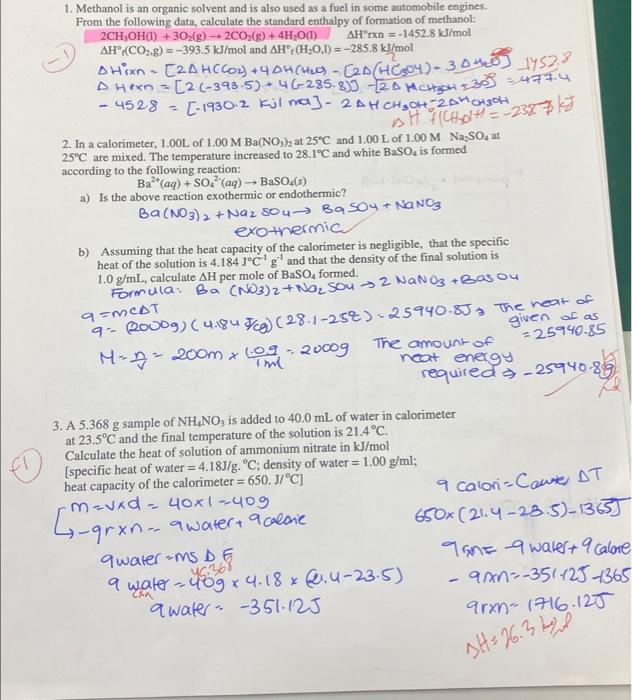 1. Methanol is an organic solvent and is also used as a fuel in some automobile engines.
From the following data, calculate the standard enthalpy of formation of methanol:
2CH₃OH(l) + 3O₂(g) → 2CO₂(g) + 4H₂O(l) ΔH°rxn = -1452.8 kJ/mol
ΔH°f(CO₂,g) = −393.5 kJ/mol and ΔH°f (H₂O,l) = −285.8 kJ/mol
-1
1452.8
= 477.4
- 452.8 = [-1930.2 KJ/mol] - 2ΔH CH₃OH
ΔH°f(CH₃OH) = -238.7 kJ
2. In a calorimeter, 1.00L of 1.00 M Ba(NO₃)₂ at 25°C and 1.00 L of 1.00 M Na₂SO₄ at
25°C are mixed. The temperature increased to 28.1°C and white BaSO₄ is formed
according to the following reaction:
Ba²⁺(aq) + SO₄²⁻(aq) → BaSO₄(s)
a) Is the above reaction exothermic or endothermic?
Ba(NO₃)₂ + Na₂SO₄ → BaSO₄ + NaNO₃
exothermic
b) Assuming that the heat capacity of the calorimeter is negligible, that the specific
heat of the solution is 4.184 J°C⁻¹ g⁻¹ and that the density of the final solution is
1.0 g/mL, calculate ΔH per mole of BaSO₄ formed.
Formula: Ba(NO₃)₂ + Na₂SO₄ → 2NaNO₃ + BaSO₄
q = mCΔT
q = (2000g) (4.184 J/cg) (28.1-25) = 25940.8J → The heat of
given of as
= 25940.85
M = n/v = 200m × 1.0g/1ml = 2000g The amount of
heat energy
required → -25940.8
3. A 5.368 g sample of NH₄NO₃ is added to 40.0 mL of water in calorimeter
at 23.5°C and the final temperature of the solution is 21.4°C.
Calculate the heat of solution of ammonium nitrate in kJ/mol
[specific heat of water = 4.18J/g. °C; density of water = 1.00 g/ml;
heat capacity of the calorimeter = 650. J/°C]
-1
m = v×d = 40×1 = 40g
-qrxn = qwater + qcalorie
qwater = ms Δ
45.368
q water = 40g × 4.18 × (21.4-23.5)
rxn
qwater = -351.12J
q calori = Ccalorie ΔT
650×(21.4-23.5) = -1365J
qrxn = -qwater + qcalorie
- qrxn = -351.12J - 1365
qrxn = 1716.12J
ΔH = 26.3 kJ/mol